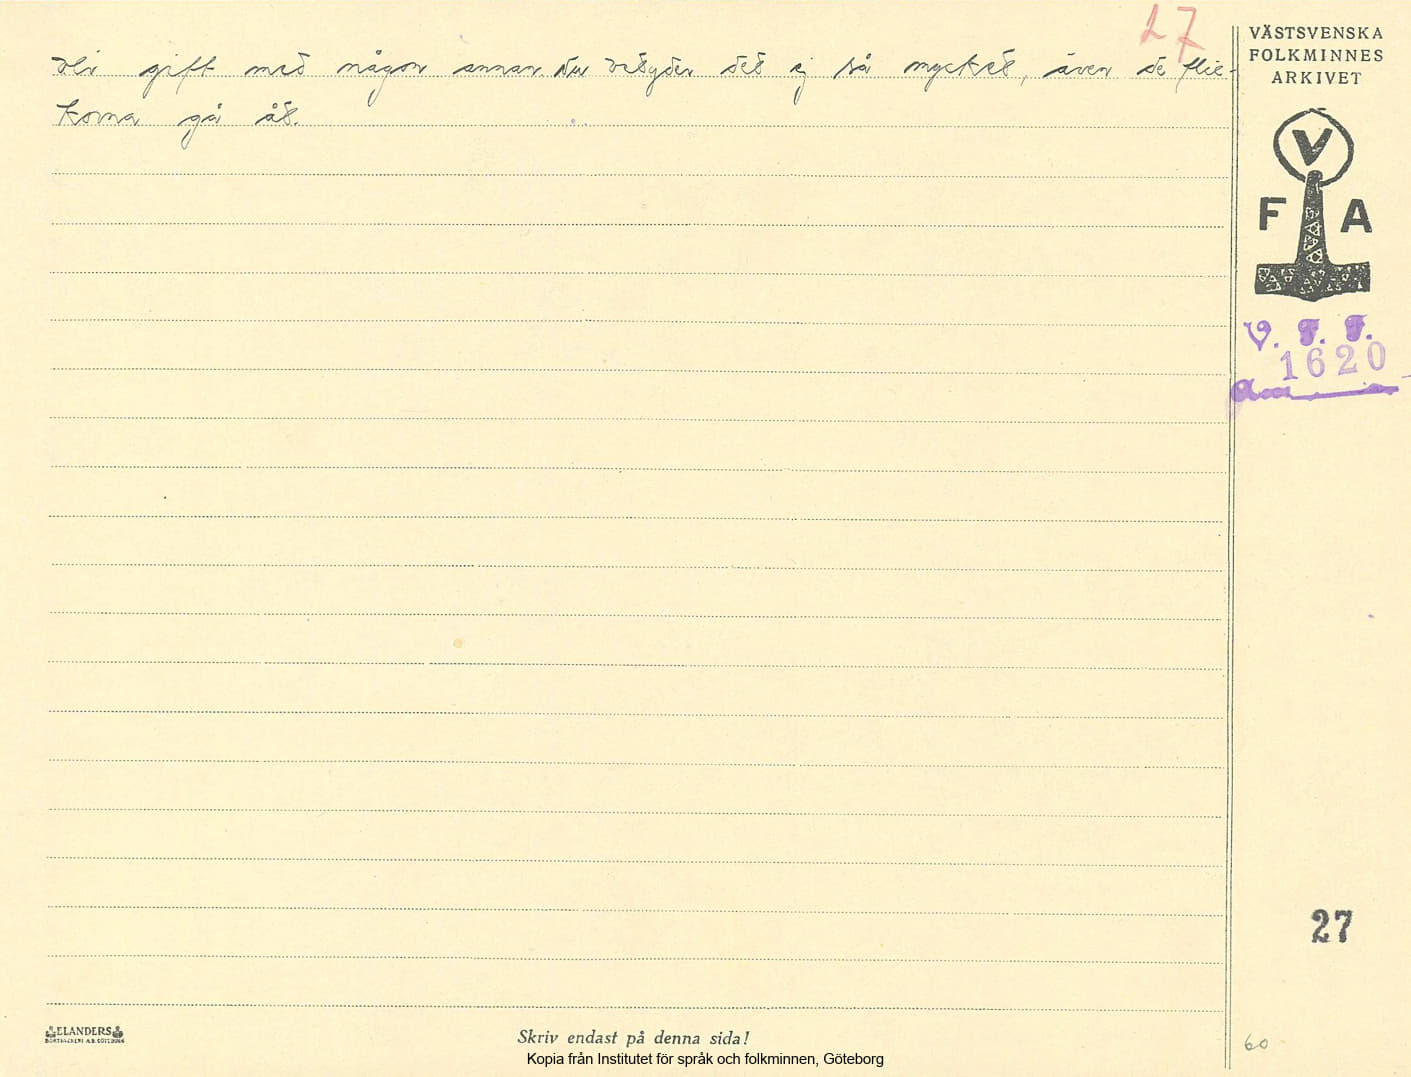 27
bli gift med någon annan. Nu betyder det ej så mycket, även de flic-
korna gå åt.
VÄSTSVENSKA
FOLKMINNES
ARKIVET
V
F A
V. F. F.
1620
27
60
ELANDERS
BOKTRYCKERI A.B. GÖTEBORG
Skriv endast på denna sida!
Kopia från Institutet för språk och folkminnen, Göteborg